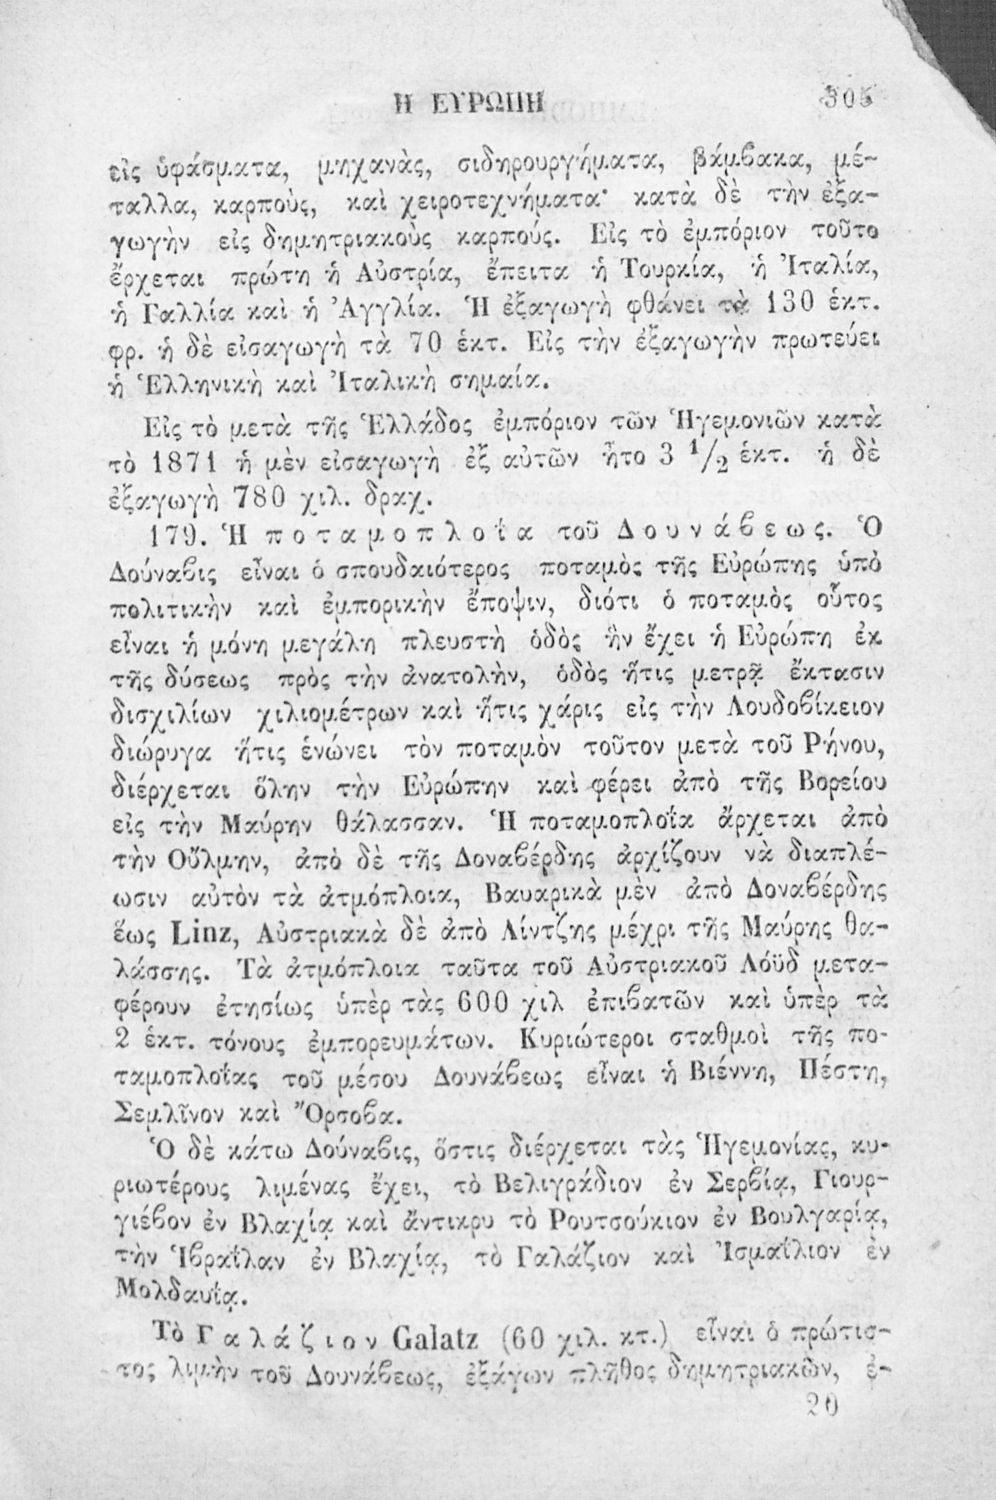 Η ΕΥΡΩΠΗ 305
εἰς ὑφάσματα, μηχανὰς, σιδηρουργήματα, βάμβακα, μέ-
ταλλα, καρποὺς, καὶ χειροτεχνήματα· κατὰ δὲ τὴν ἐξα-
γωγὴν εἰς δημητριακοὺς καρπούς. Εἰς τὸ ἐμπόριον τοῦτο
ἔρχεται πρώτη ἡ Αὐστρία, ἔπειτα ἡ Τουρκία, ἡ Ἰταλία,
ἡ Γαλλία καὶ ἡ Ἀγγλία. Ἡ ἐξαγωγὴ φθάνει τὰ 130 ἑκτ.
φρ. ἡ δὲ εἰσαγωγὴ τὰ 70 ἑκτ. Εἰς τὴν ἐξαγωγὴν πρωτεύει
ἡ Ἑλληνικὴ καὶ Ἰταλικὴ σημαία.
Εἰς τὸ μετὰ τῆς Ἑλλάδος ἐμπόριον τῶν Ἡγεμονιῶν κατὰ
τὸ 1871 ἡ μὲν εἰσαγωγὴ ἐξ αὐτῶν ἦτο 3 1/2 ἑκτ. ἡ δὲ
ἐξαγωγὴ 780 χιλ. δραχ.
179. Ἡ ποταμοπλοΐα τοῦ Δουνάβεως. Ὁ
Δούναβις εἶναι ὁ σπουδαιότερος ποταμὸς τῆς Εὐρώπης ὑπὸ
πολιτικὴν καὶ ἐμπορικὴν ἔποψιν, διότι ὁ ποταμὸς οὗτος
εἶναι ἡ μόνη μεγάλη πλευστὴ ὁδὸς ἣν ἔχει ἡ Εὐρώπη ἐκ
τῆς δύσεως πρὸς τὴν ἀνατολὴν, ὁδὸς ἥτις μετρᾷ ἔκτασιν
δισχιλίων χιλιομέτρων καὶ ἥτις χάρις εἰς τὴν Λουδοβίκειον
διώρυγα ἥτις ἑνώνει τὸν ποταμὸν τοῦτον μετὰ τοῦ Ρήνου,
διέρχεται ὅλην τὴν Εὐρώπην καὶ φέρει ἀπὸ τῆς Βορείου
εἰς τὴν Μαύρην θάλασσαν. Ἡ ποταμοπλοΐα ἄρχεται ἀπὸ
τὴν Οὔλμην, ἀπὸ δὲ τῆς Δοναβέρδης ἀρχίζουν νὰ διαπλέ-
ωσιν αὐτὸν τὰ ἀτμόπλοια, Βαυαρικὰ μὲν ἀπὸ Δοναβέρδης
ἕως Linz, Αὐστριακὰ δὲ ἀπὸ Λίντζης μέχρι τῆς Μαύρης θα-
λάσσης. Τὰ ἀτμόπλοια ταῦτα τοῦ Αὐστριακοῦ Λόϋδ μετα-
φέρουν ἐτησίως ὑπὲρ τὰς 600 χιλ ἐπιβατῶν καὶ ὑπὲρ τὰ
2 ἑκτ. τόνους ἐμπορευμάτων. Κυριώτεροι σταθμοὶ τῆς πο-
ταμοπλοΐας τοῦ μέσου Δουνάβεως εἶναι ἡ Βιέννη, Πέστη,
Σεμλῖνον καὶ Ὄρσοβα.
Ὁ δὲ κάτω Δούναβις, ὅστις διέρχεται τὰς Ἡγεμονίας, κυ-
ριωτέρους λιμένας ἔχει, τὸ Βελιγράδιον ἐν Σερβίᾳ, Γιουρ-
γιέβον ἐν Βλαχίᾳ καὶ ἄντικρυ τὸ Ρουτσούκιον ἐν Βουλγαρίᾳ,
τὴν Ἰβραΐλαν ἐν Βλαχίᾳ, τὸ Γαλάζιον καὶ Ἰσμαΐλιον ἐν
Μολδαυΐᾳ.
Τὸ Γαλάζιον Galatz (60 χιλ. κτ.) εἶναι ὁ πρώτισ-
τος λιμὴν τοῦ Δουνάβεως, ἐξάγων πλῆθος δημητριακῶν, ἐ-
20